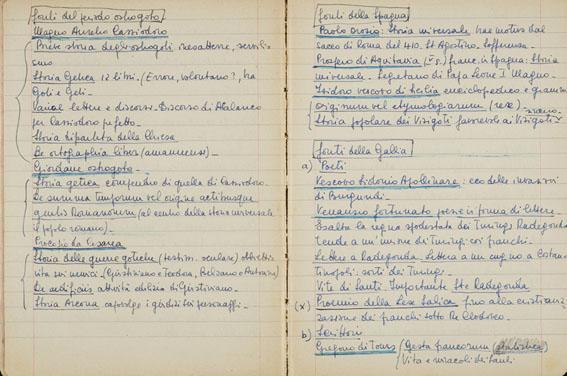 fonti del periodo ostrogoto
Magno Aurelio Cassiodoro
Prima storia degli ostrogoti inesattezze, servili
smo
Storia Getica 12 libri. (Errore, volontario?, tra
Goti e Geti.
Variae lettere e discorsi. Discorso di Atalarico
per Cassiodoro prefetto.
Storia tripartita della Chiesa
De ortographia liber (amanuensi)
Giordane ostrogoto
Storia getica compendio di quella di Cassiodoro.
De summa temporum vel origine actibusque
gentis Romanorum (al centro della storia universale
il popolo romano).
Procopio da Cesarea
Storia delle guerre gotiche (testim. oculare) obiettivi
vità sui nemici. (Giustiniano e Teodora, Belisario e Antonina)
De aedificiis attività edilizia di Giustiniano.
Storia Arcana capovolge i giudizi sui personaggi.
fonti della Spagna
Paolo Orosio: Storia universale trae motivo dal
sacco di Roma del 410. St Agostino. Sofferenza.
Prospero di Aquitania (V s.) franc. in Spagna: Storia
universale. Segretario di Papa Leone I Magno.
Isidoro vescovo di Siviglia enciclopedico e
originum vel etymologiarum (rese)
Storia popolare dei Visigoti favorevole ai Visigoti
fonti della Gallia
a) Poeti
Vescovo Sidonio Apollinare: eco delle invasioni
di Burgundi.
Venanzio fortunato poesie in forma di lettere.
Esalta la regina spodestata dei Turingi Radegonda
tende a un'unione di Turingi coi franchi.
Lettera a Radegonda. Lettera a un cugino a Costan
tinopoli: sorti dei Turingi.
Vite di Santi. Importante Sta Radegonda
(x) Proemio della Lex Salica fino alla cristianiz-
zazione dei franchi sotto Re Clodoveo.
b) Scrittori
Gregorio di Tours Gesta francorum
Vita e miracoli dei Santi